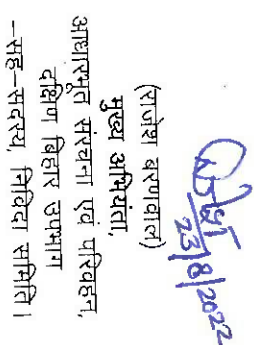 23/8/2022
(राजेश बरणवाल)
मुख्य अभियंता,
आधारभूत संरचना एवं परिवहन,
दक्षिण बिहार उपभाग
–सह–सदस्य, निविदा समिति।